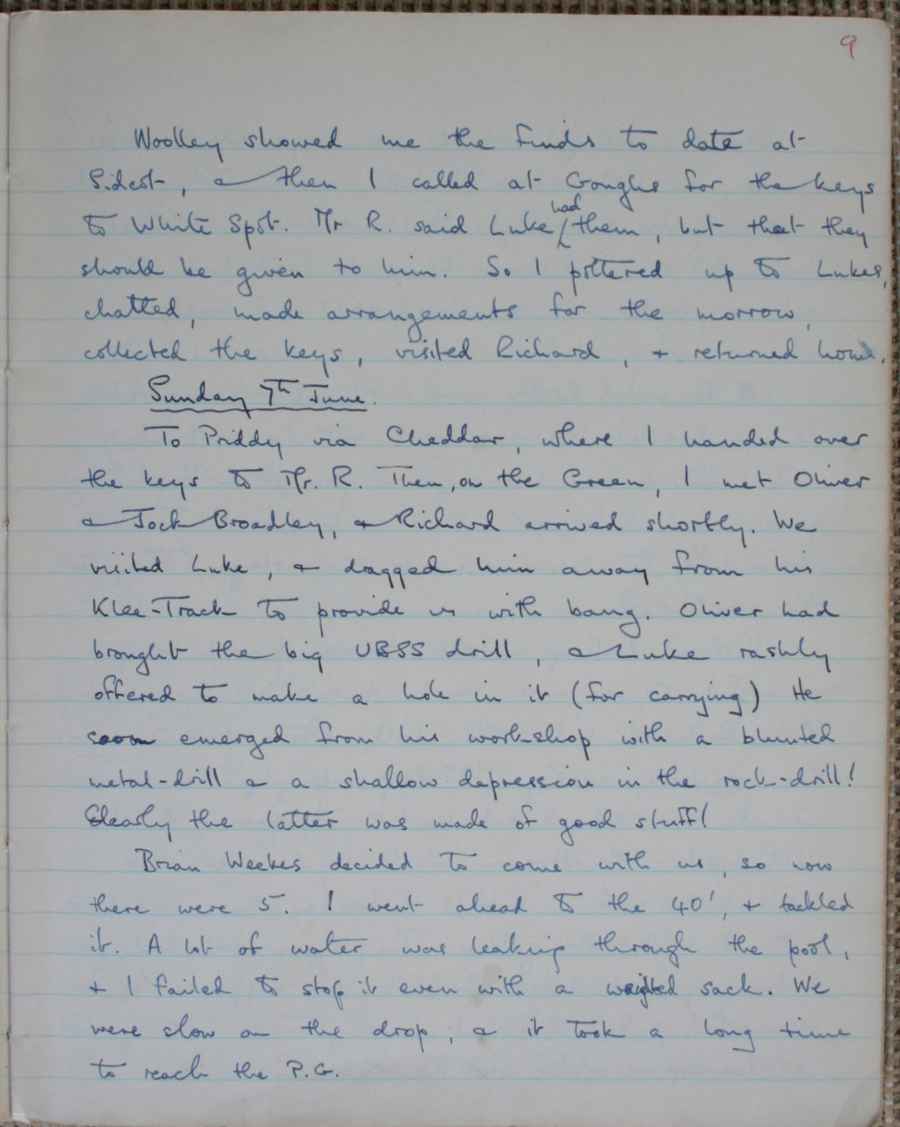 9
Woolley showed me the finds to date at
Sidcot, & then I called at Goughs for the keys
to White Spot. Mr R. said Luke had them, but that they
should be given to him. So I pottered up to Lukes,
chatted, made arrangements for the morrow,
collected the keys, visited Richard, & returned home.
Sunday 7th June.
To Priddy via Cheddar, where I handed over
the keys to Mr. R. Then, on the Green, I met Oliver
& Jock Broadley, & Richard arrived shortly. We
visited Luke, & dagged him away from his
Klee-Track to provide us with bang. Oliver had
brought the big UBSS drill, & Luke rashly
offered to make a hole in it (for carrying) He
soon emerged from his work-shop with a blunted
metal-drill & a shallow depression in the rock-drill!
Clearly the latter was made of good stuff!
Brian Weekes decided to come with us, so now
there were 5. I went ahead to the 40', & tackled
it. A lot of water was leaking through the pool,
& I failed to stop it even with a weighted sack. We
were slow on the drop, & it took a long time
to reach the P.G.